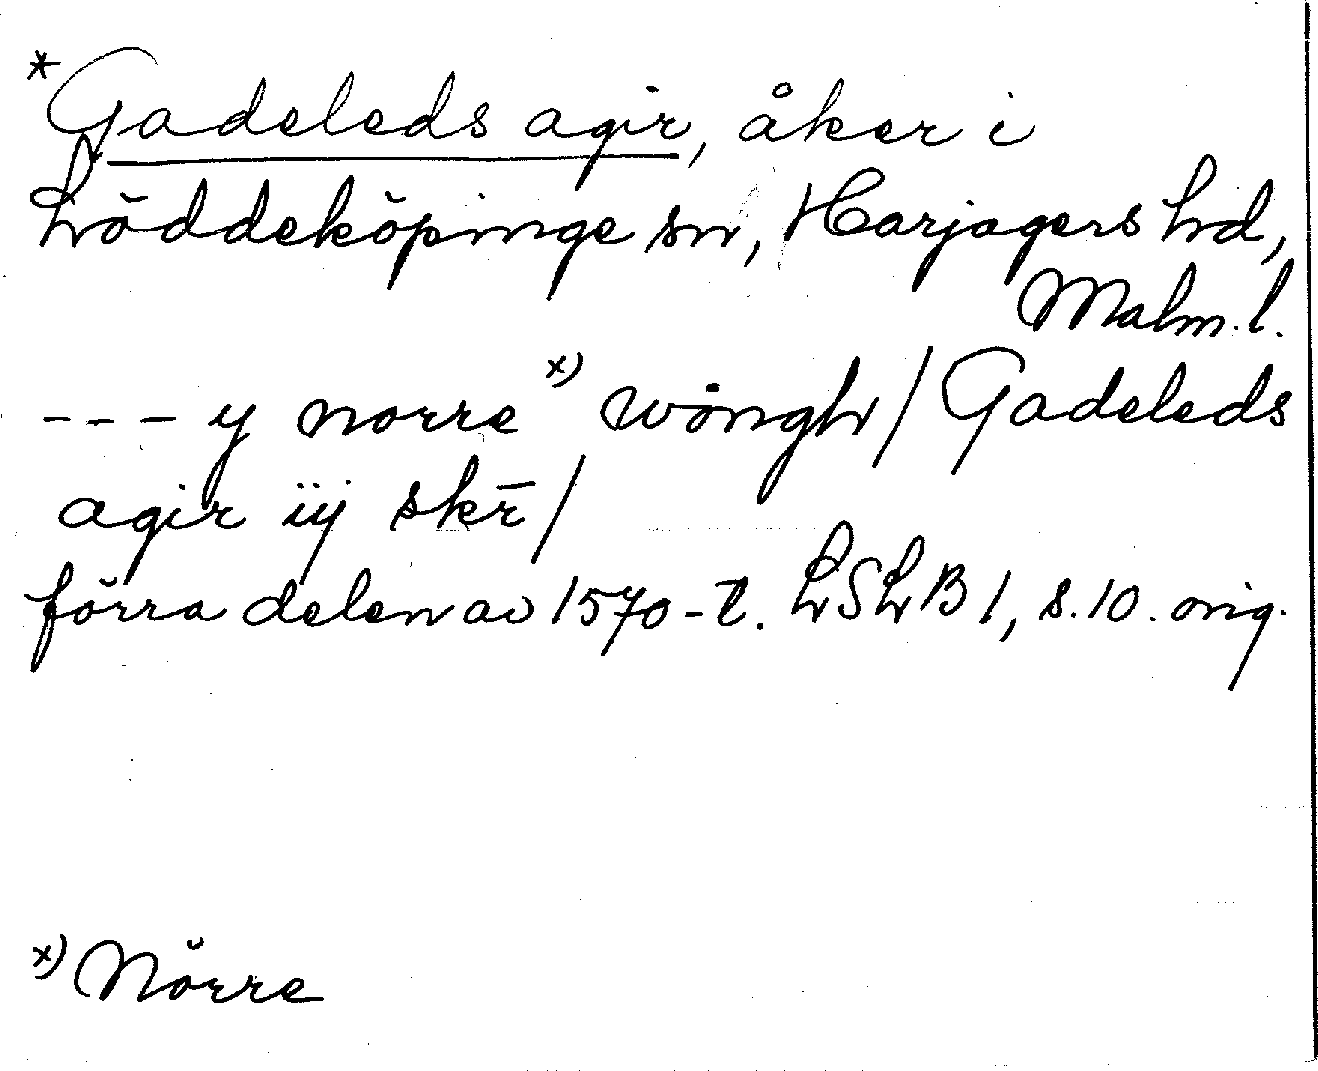 *Gadeleds agir, åker i
Löddeköpinge sn, Harjagers hd,
Malm. l.
--- y norre x) wongh / Gadeleds
agir iij skr̄ /
förra delen av 1570-t. LSLB 1, s. 10. orig.
x) Nörre